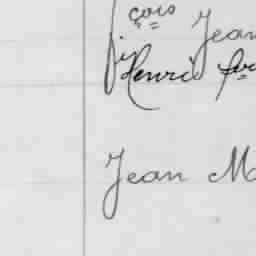 çois Jean
fis
Henri
Jean Ma